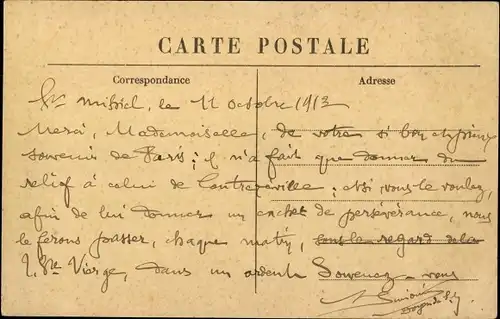 CARTE POSTALE
Correspondance
Adresse
St Mihiel, le 11 octobre 1913
Merci, Mademoiselle, de votre si bon et pieux
souvenir de Paris; il n'a fait que donner du
relief à celui de Contrexéville; et si vous le voulez,
afin de lui donner un cachet de persévérance, nous
le ferons passer, chaque matin, sous le regard de la
T. Ste Vierge, dans un ardent Souvenez-vous